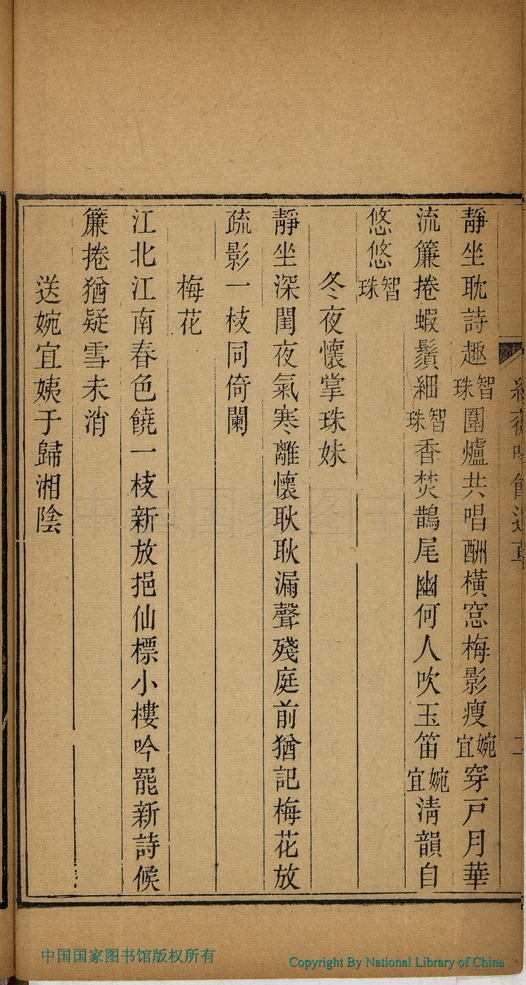 靜坐耽詩趣智珠圍爐共唱酬橫窓梅影瘦婉宜穿戸月華
流簾捲蝦鬚細智珠香焚鵲尾幽何人吹玉笛婉宜清韻自
悠悠智珠
冬夜懷掌珠妹
靜坐深閨夜氣寒離懷耿耿漏聲殘庭前猶記梅花放
疏影一枝同倚闌
梅花
江北江南春色饒一枝新放挹仙標小樓吟罷新詩候
簾捲猶疑雪未消
送婉宜姨于歸湘陰
中国国家图书馆版权所有
Copyright By National Library of China